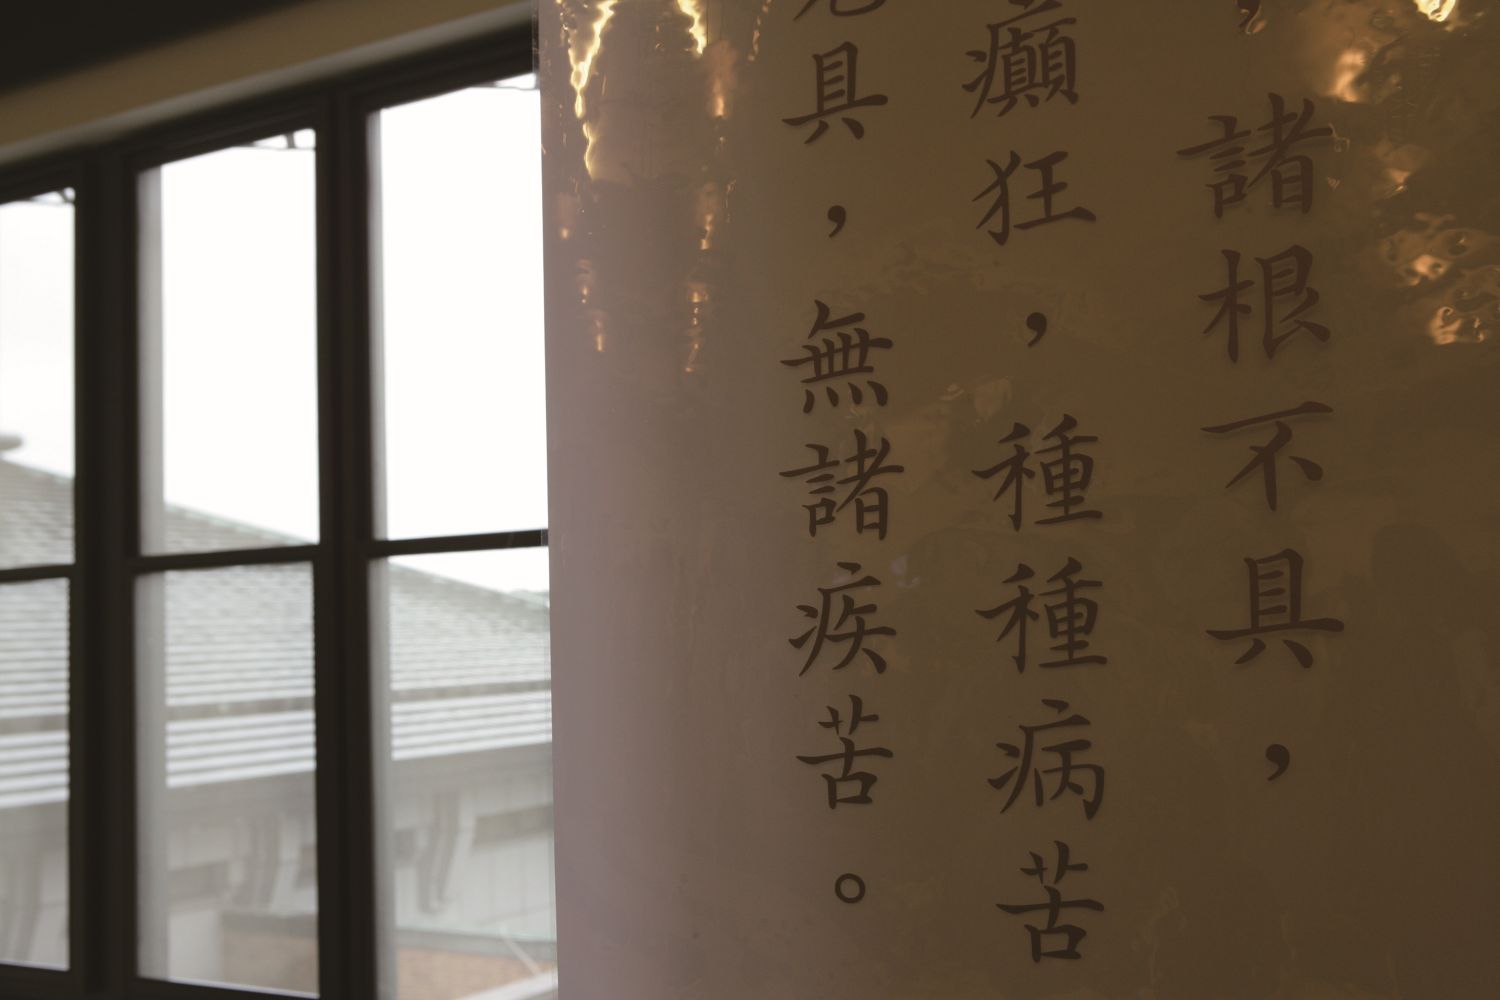 ，諸根不具，
癲狂，種種病苦
具，無諸疾苦。